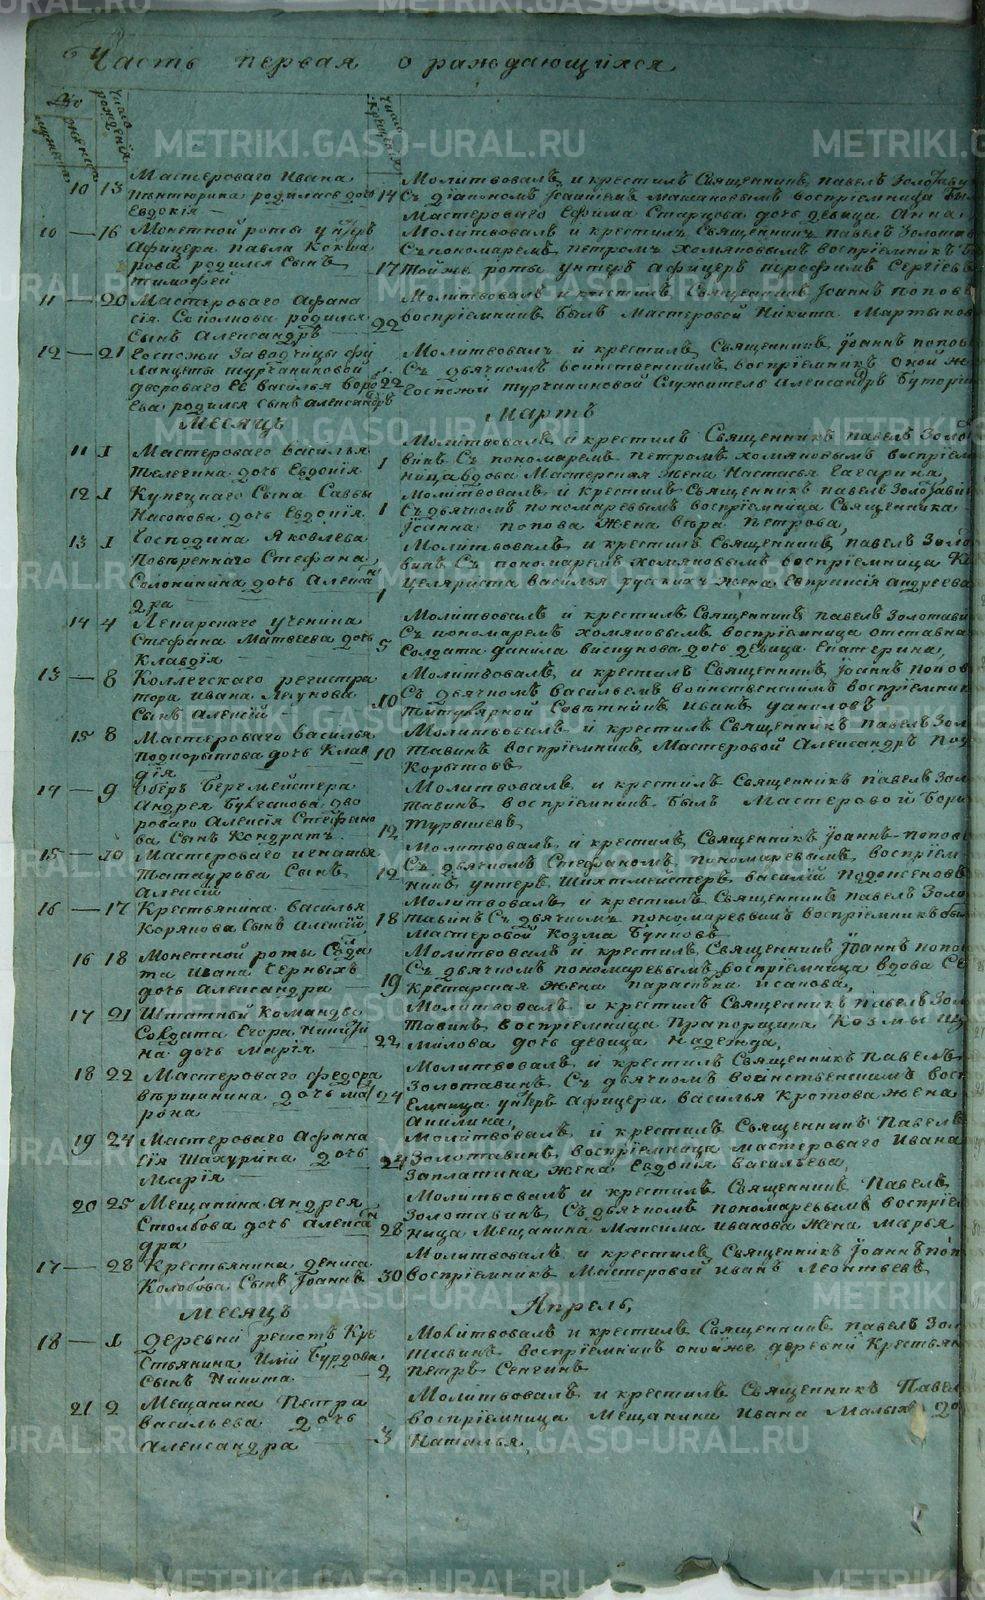 Часть первая о раждающихся
Число рождения
Число крещения
10 13 Мастероваго Ивана
Пьянтюрина родилась дочь
Евдокія
14 Молитвовалъ и крестилъ Священникъ павелъ Золотави
Съ діакономъ Іоанномъ восприемница бы
Мастероваго Ефима Старцова дочь девица Анна
10 — 16 Монетной роты унтеръ
Афицера павла Кокша
рова родился сынъ
тимофей
Молитвовалъ и крестилъ Священникъ павелъ Золотав
Съ пономаремъ петромъ хомяковымъ воспріемникъ б
17 тойже роты унтеръ афицеръ порфиръ Сергіевъ
11 — 20 Мастероваго Афана
сія Соколкова родился
сынъ Александръ
22 Молитвовалъ и крестилъ Священникъ Іоаннъ поповъ
воспріемникъ былъ Мастеровой Никита Мартынов
12 — 21 Госпожи Заводчицы фи
ланцеты турчаниновой
двороваго Ее василья боро
ева родился сынъ александръ
22 Молитвовалъ и крестилъ Священникъ Іоаннъ поповъ
Съ дьячкомъ воинственскимъ воспріемникъ оной же
Госпожи турчаниновой Служитель Александръ Буторин
Месяцъ Мартъ
11 1 Мастероваго василья
телегина дочь Евдокія
1 Молитвовалъ и крестилъ Священникъ павелъ Золо
винъ Съ пономаремъ петромъ хомяковымъ воспрiем
ница вдова Мастерская жена Настасья Гагарина
12 1 Купецкаго Сына Саввы
Насонова дочь Евдокія
1 Молитвовалъ и крестилъ Священникъ павелъ Золотави
Съ дьячкомъ пономаревымъ воспріемница Священника
Іоанна попова жена вера петрова,
13 1 Господина Яковлева
повереннаго Стефана
Солонинина дочь Алексан
дра
1 Молитвовалъ и крестилъ Священникъ павелъ Золо
винъ Съ пономаремъ хомяковымъ воспріемница Кан
целяриста василья русскихъ жена Евпраксія андреева
14 4 Лекарскаго ученика
Стефана Матвеева дочь
Клавдія
5 Молитвовалъ и крестилъ Священникъ павелъ Золотави
Съ пономаремъ хомяковымъ воспріемница отставна
Солдата данила вискунова дочь девица Екатерина,
13 — 8 Коллежскаго регистра
тора ивана Легунова
Сынъ Алексій
10 Молитвовалъ и крестилъ Священникъ Іоаннъ попов
Съ дьячкомъ васильемъ воинственскимъ воспріемник
титулярной Советникъ иванъ даниловъ
15 8 Мастероваго василья
подкорытова дочь Клав
дія
10 Молитвовалъ и крестилъ Священникъ павелъ Зол
тавинъ воспріемникъ Мастеровой Александръ под
Корытовъ
14 — 9 Оберъ Бергмейстера
Андрея Булгакова дво
роваго Алексія Стефано
ва Сынъ Кондратъ
12 Молитвовалъ и крестилъ Священникъ павелъ Зол
тавинъ воспріемникъ былъ Мастеровой Бори
Турышевъ
15 — 10 Мастероваго игнатья
Татаурова Сынъ
Алексій
12 Молитвовалъ и крестилъ Священникъ Іоаннъ поповъ
Съ дьячкомъ Стефаномъ пономаревымъ воспріем
никъ унтеръ Шихтмейстеръ василій подоксеновъ
16 — 17 Крестьянина василья
Корянова Сынъ Алексій
18 Молитвовалъ и крестилъ Священникъ павелъ Золо
тавинъ Съ дьячкомъ пономаревымъ воспріемникъ бы
Мастеровой Козма Бунковъ
16 18 Монетной роты Солда
та ивана Черныхъ
дочь Александра
19 Молитвовалъ и крестилъ Священникъ Іоаннъ попо
Съ дьячкомъ пономаревымъ воспріемница вдова Се
Кретарская жена парасковья исакова,
17 21 Штатной Команды
Солдата Егора
на дочь Марія
22 Молитвовалъ и крестилъ Священникъ павелъ Зол
тавинъ воспріемница Прапорщика Козмы
милова дочь девица надежда,
18 22 Мастероваго федора
вършинина дочь мат
рона
24 Молитвовалъ и крестилъ Священникъ павелъ
Золотавинъ Съ дьячкомъ воинственскимъ вос
емница унтеръ Афицера василья Кротова жена
Акилина,
19 24 Мастероваго Афана
сія Шахурина дочь
Марія
24 Молитвовалъ и крестилъ Священникъ Павелъ
Золотавинъ воспріемница мастероваго Ивана
Заплатина жена Евдокія васильева,
20 25 Мещанина Андрея
Столбова дочь Алексан
дра
28 Молитвовалъ и крестилъ Священникъ Павелъ
Золотавинъ Съ дьячкомъ пономаревымъ воспріем
ница Мещанина Максима иванова жена марья
17 — 28 Крестьянина дениса
Колобова Сынъ Іоаннъ
30 Молитвовалъ и крестилъ Священникъ Іоаннъ поп
воспріемникъ Мастеровой иванъ Леонтьевъ
Месяцъ Апрель,
18 — 1 Деревни решетъ Кре
стьянина Иліи Бурдова
Сынъ Никита
2 Молитвовалъ и крестилъ Священникъ павелъ Зол
тавинъ воспріемникъ онойже деревни Крестьян
петръ Сенгинъ
21 2 Мещанина Петра
васильева дочь
Александра
3 Молитвовалъ и крестилъ Священникъ Павел
воспріемница Мещанина Ивана Малых до
Наталья,
METRIKI.GASO-URAL.RU